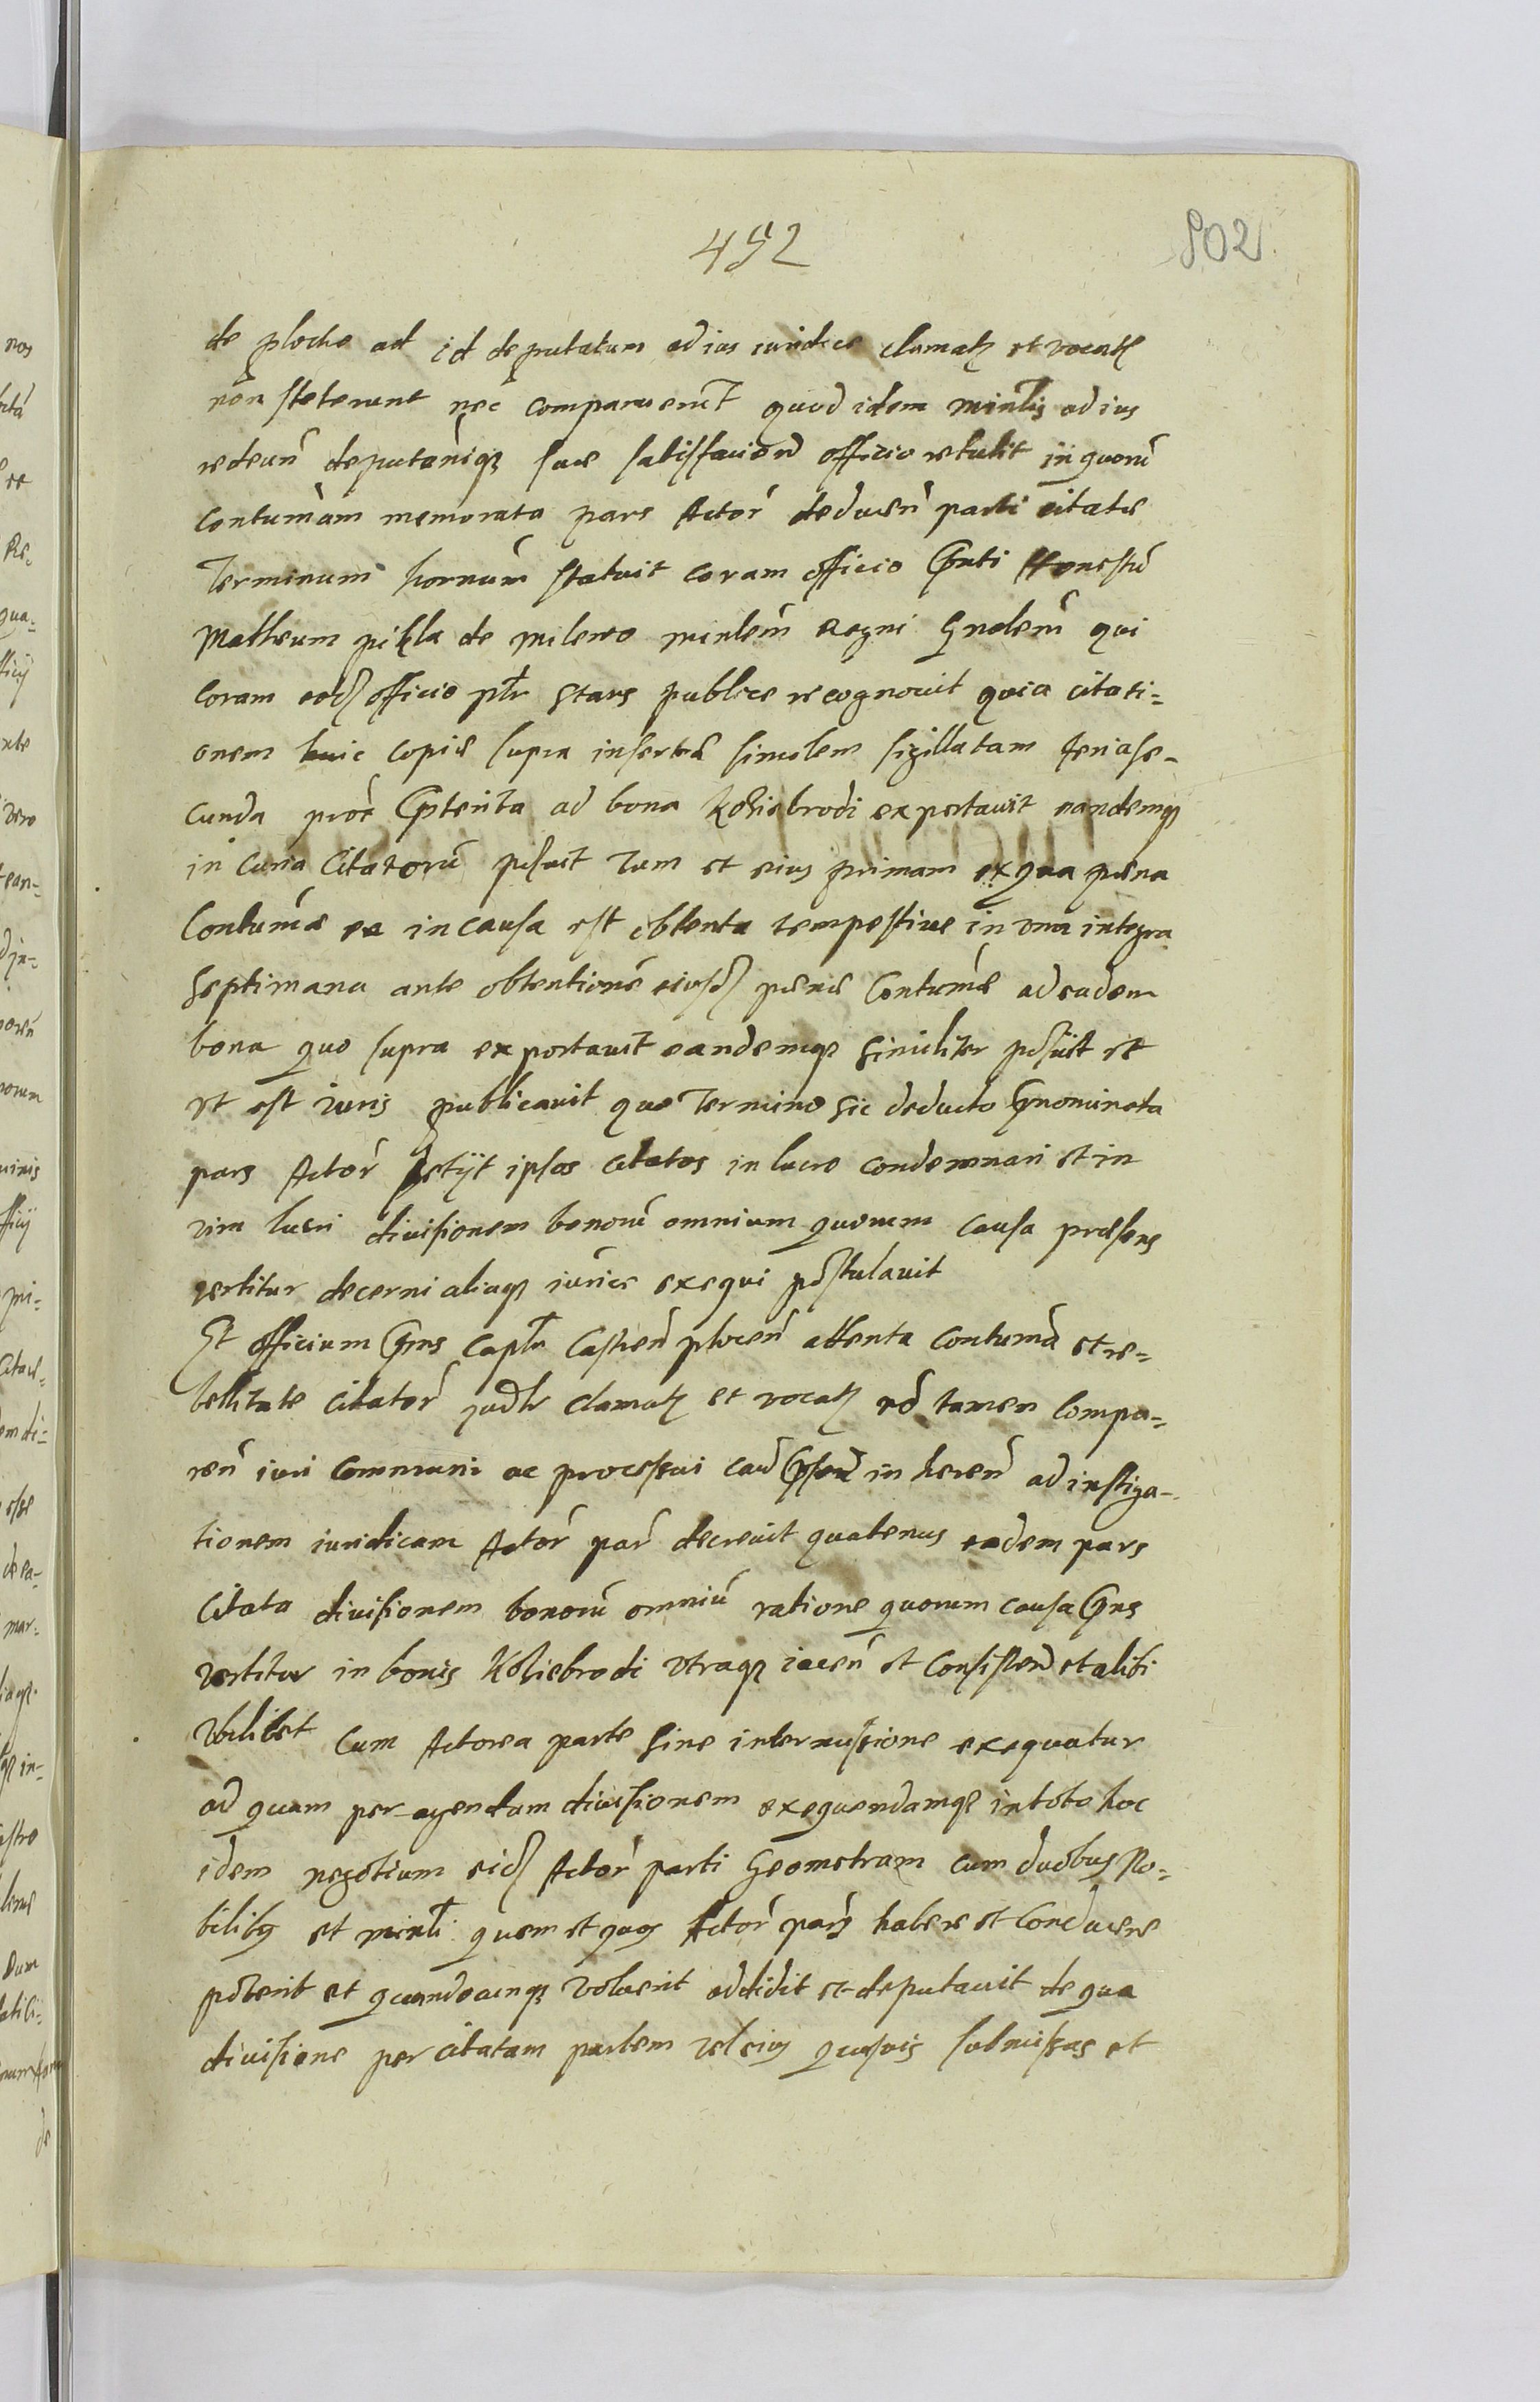 492
802
de plocko ad id deputatum ad ius iuridice clamatz et vocatz
non steterunt nec comparuerunt quod idem minlis ad ius
redeun deputaniqz suae satisfaciend officio retulit in quorum
contumam memorata pars Actor deducen parti citatae
Terminum hornum statuit coram officio pnti Honestum
Matheum pihla de milewo minlem Regni Gnalem qui
Coram eodz officio plr stans publice recognovit quia citati-
onem huic copiae supra insertae similem sigillatam feria se-
cunda prox pterita ad bona Koziebrodi exportauit eandemqz
in Curia Citatorum posuit Tum et eius primam ex qua paena
Contumae ea in causa est obtenta tempestiue in una integra
Septimana ante obtentionem eiusdz paenae Contumae ad eadem
bona quo supra exportauit eandemqz similiter posuit et
vt est iuris publicauit quo Termino sic deducto pnominata
pars Actor petijt ipsos citatos in lucro condemnari et in
vim lucri diuisionem bonorum omnium quorum causa praesens
vertitur decerni aliaqz iurice exequi postulauit
Et officium pns Caplu Castren plocen attenta contuma et re-
bellitate citator judlr clamatz et vocatz no tamen Compa-
ren iuri communi ac processui cau psen in heren ad instiga-
tionem iuridicam Actor par decreuit quatenus eadem pars
citata diuisionem bonorum omnium ratione quorum causa pns
vertitur in bonis Koziebrodi vtraqz iacen et Consisten et alibi
vbilibet cum Actorea parte sine intermissione exequatur
ad quam peragendam diuisionem exequendamqz in toto hoc
idem negotium eidz Actor parti Geometram cum duobus No-
bilibz et minli quem et quos Actor pars habere et Conducere
poterit et quandocunqz voluerit addidit et deputauit de qua
diuisione per citatam partem vel eius quasuis submissas et